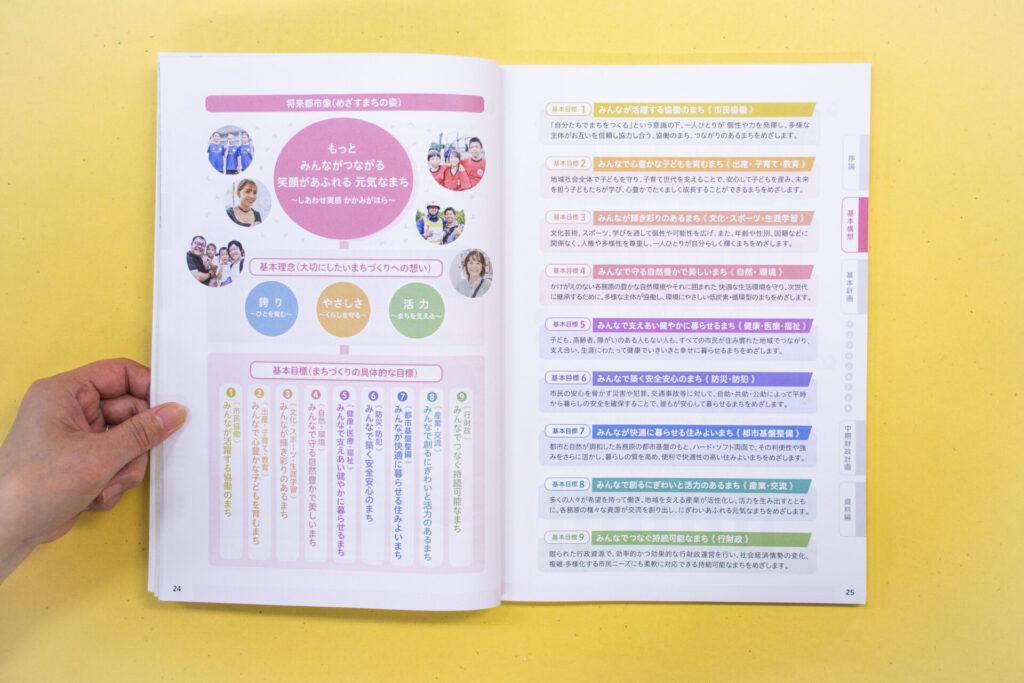 将来都市像(めざすまちの姿)
もっと
みんながつながる
笑顔があふれる 元気なまち
～しあわせ実感 かかみがはら～
基本理念(大切にしたいまちづくりへの想い)
誇り
～ひとを育む～
やさしさ
～くらしを守る～
活力
～まちを支える～
基本目標(まちづくりの具体的な目標)
1
《市民協働》
みんなが活躍する協働のまち
2
《出産・子育て・教育》
みんなで心豊かな子どもを育むまち
3
《文化・スポーツ・生涯学習》
みんなが輝き彩りのあるまち
4
《自然・環境》
みんなで守る自然豊かで美しいまち
5
《健康・医療・福祉》
みんなで支えあい健やかに暮らせるまち
6
《防災・防犯》
みんなで築く安全安心のまち
7
《都市基盤整備》
みんなが快適に暮らせる住みよいまち
8
《産業・交流》
みんなで創るにぎわいと活力のあるまち
9
《行財政》
みんなでつなぐ持続可能なまち
24
基本目標 1 みんなが活躍する協働のまち《市民協働》
「自分たちでまちをつくる」という意識の下、一人ひとりが 個性や力を発揮し、多様な
主体がお互いを信頼し協力し合う、協働のまち、つながりのあるまちをめざします。
基本目標 2 みんなで心豊かな子どもを育むまち《出産・子育て・教育》
地域社会全体で子どもを守り、子育て世代を支えることで、安心して子どもを産み、未来
を担う子どもたちが学び、心豊かでたくましく成長することができるまちをめざします。
基本目標 3 みんなが輝き彩りのあるまち《文化・スポーツ・生涯学習》
文化芸術、スポーツ、学びを通して個性や可能性を広げ、また、年齢や性別、国籍などに
関係なく、人権や多様性を尊重し、一人ひとりが自分らしく輝くまちをめざします。
基本目標 4 みんなで守る自然豊かで美しいまち《自然・環境》
かけがえのない各務原の豊かな自然環境やそれに囲まれた 快適な生活環境を守り、次世代
に継承するために、多様な主体が協働し、環境にやさしい低炭素・循環型のまちをめざします。
基本目標 5 みんなで支えあい健やかに暮らせるまち《健康・医療・福祉》
子ども、高齢者、障がいのある人もない人も、すべての市民が住み慣れた地域でつながり、
支え合い、生涯にわたって健康でいきいきと幸せに暮らせるまちをめざします。
基本目標 6 みんなで築く安全安心のまち《防災・防犯》
市民の安心を脅かす災害や犯罪、交通事故等に対して、自助・共助・公助によって平時
から暮らしの安全を確保することで、誰もが安心して暮らせるまちをめざします。
基本目標 7 みんなが快適に暮らせる住みよいまち《都市基盤整備》
都市と自然が調和した各務原の都市基盤のもと、ハード・ソフト両面で、その利便性や強
みをさらに活かし、暮らしの質を高め、便利で快適性の高い住みよいまちをめざします。
基本目標 8 みんなで創るにぎわいと活力のあるまち《産業・交流》
多くの人々が希望を持って働き、地域を支える産業が活性化し、活力を生み出すとともに、
各務原の様々な資源が交流を創り出し、にぎわいあふれる元気なまちをめざします。
基本目標 9 みんなでつなぐ持続可能なまち《行財政》
限られた行政資源で、効率的かつ効果的な行財政運営を行い、社会経済情勢の変化、
複雑・多様化する市民ニーズにも柔軟に対応できる持続可能なまちをめざします。
序論
基本構想
基本計画
中期財政計画
資料編
25